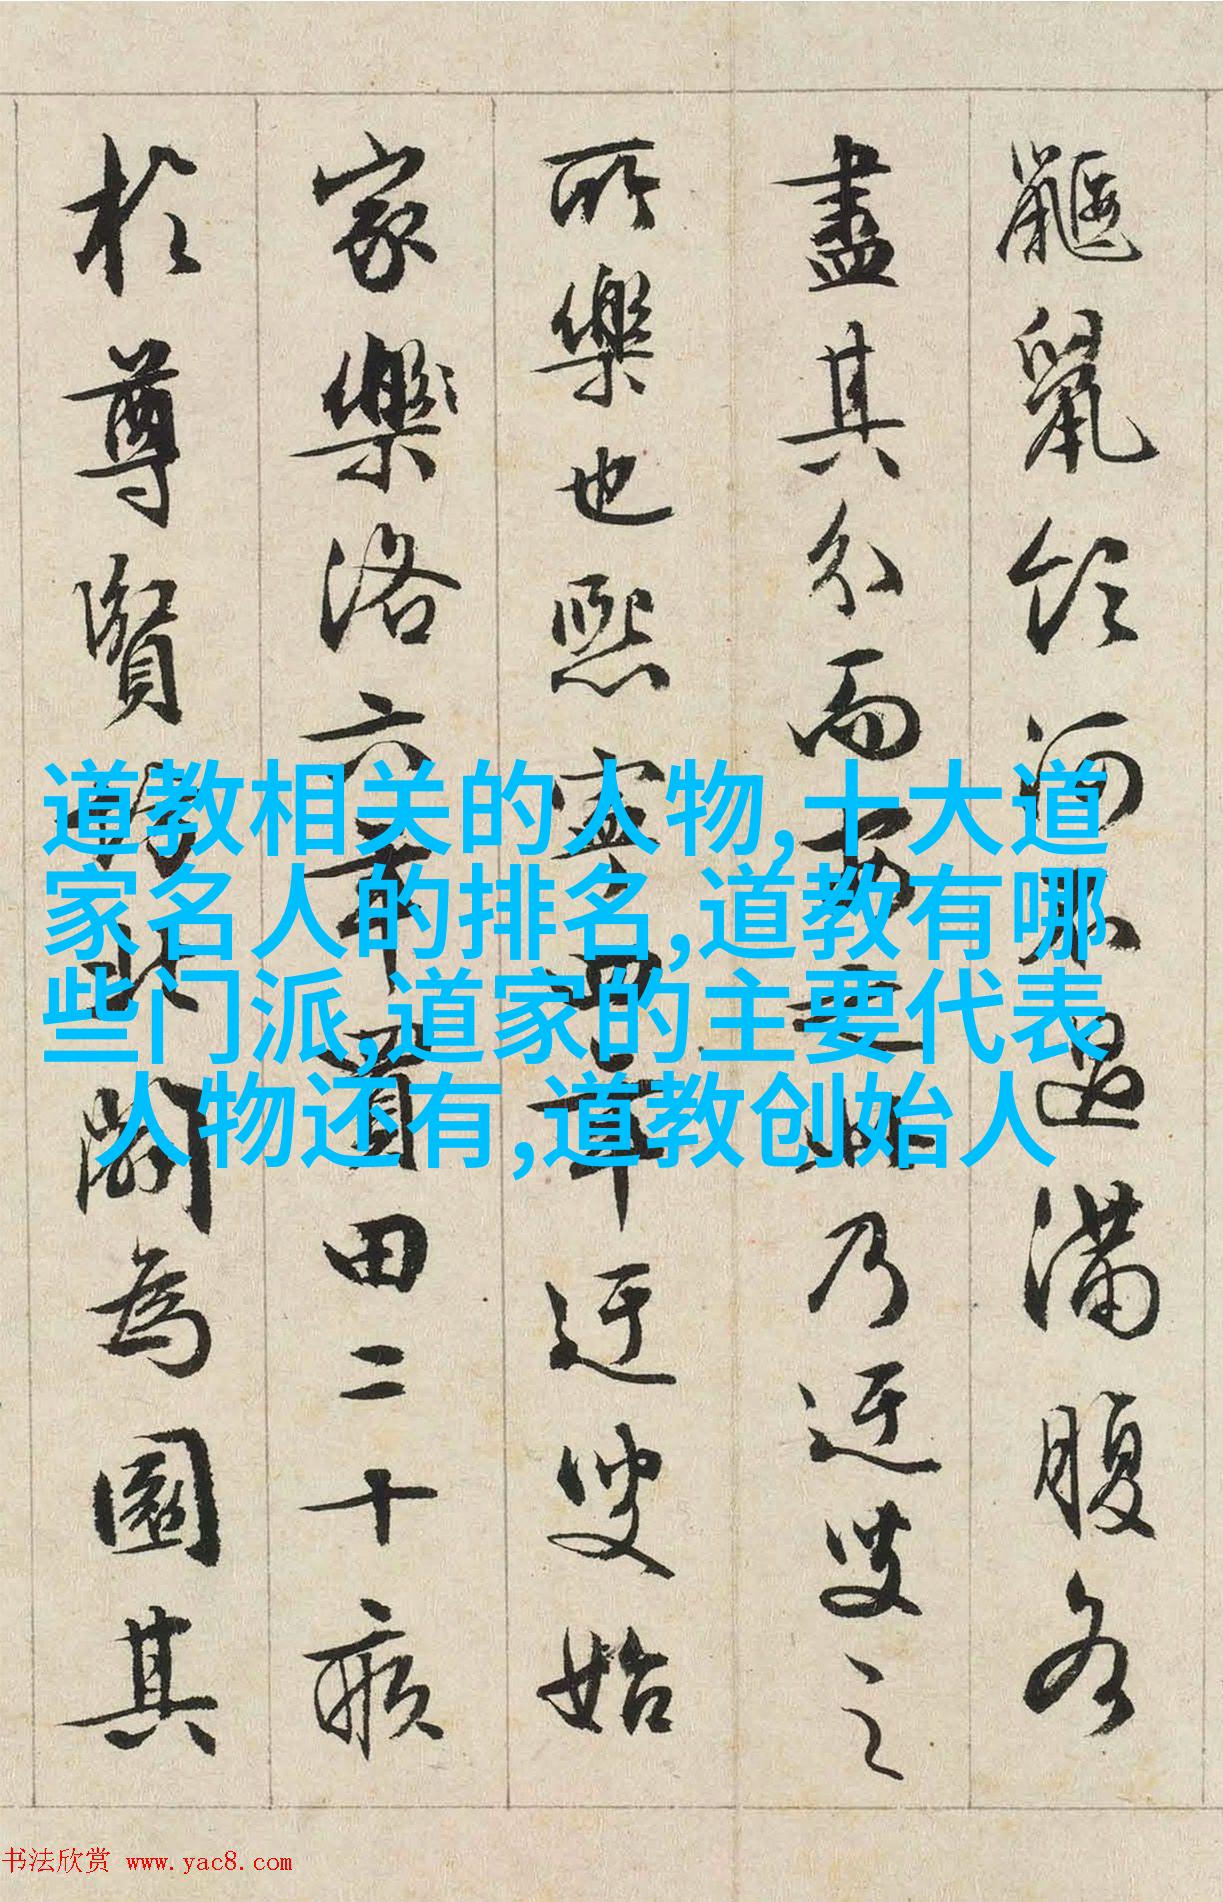 鼴鼠飲河不過滿腹各
盡其分而安之此乃迂叟之
所樂也熙寧四年迂叟始
家樂洛六年買田二十畝
於尊賢坊北闢為園其
道教相关的人物,十大道
家名人的排名,道教有哪
些门派,道家的主要代表
人物还有,道教创始人
书法欣赏 www.yac8.com